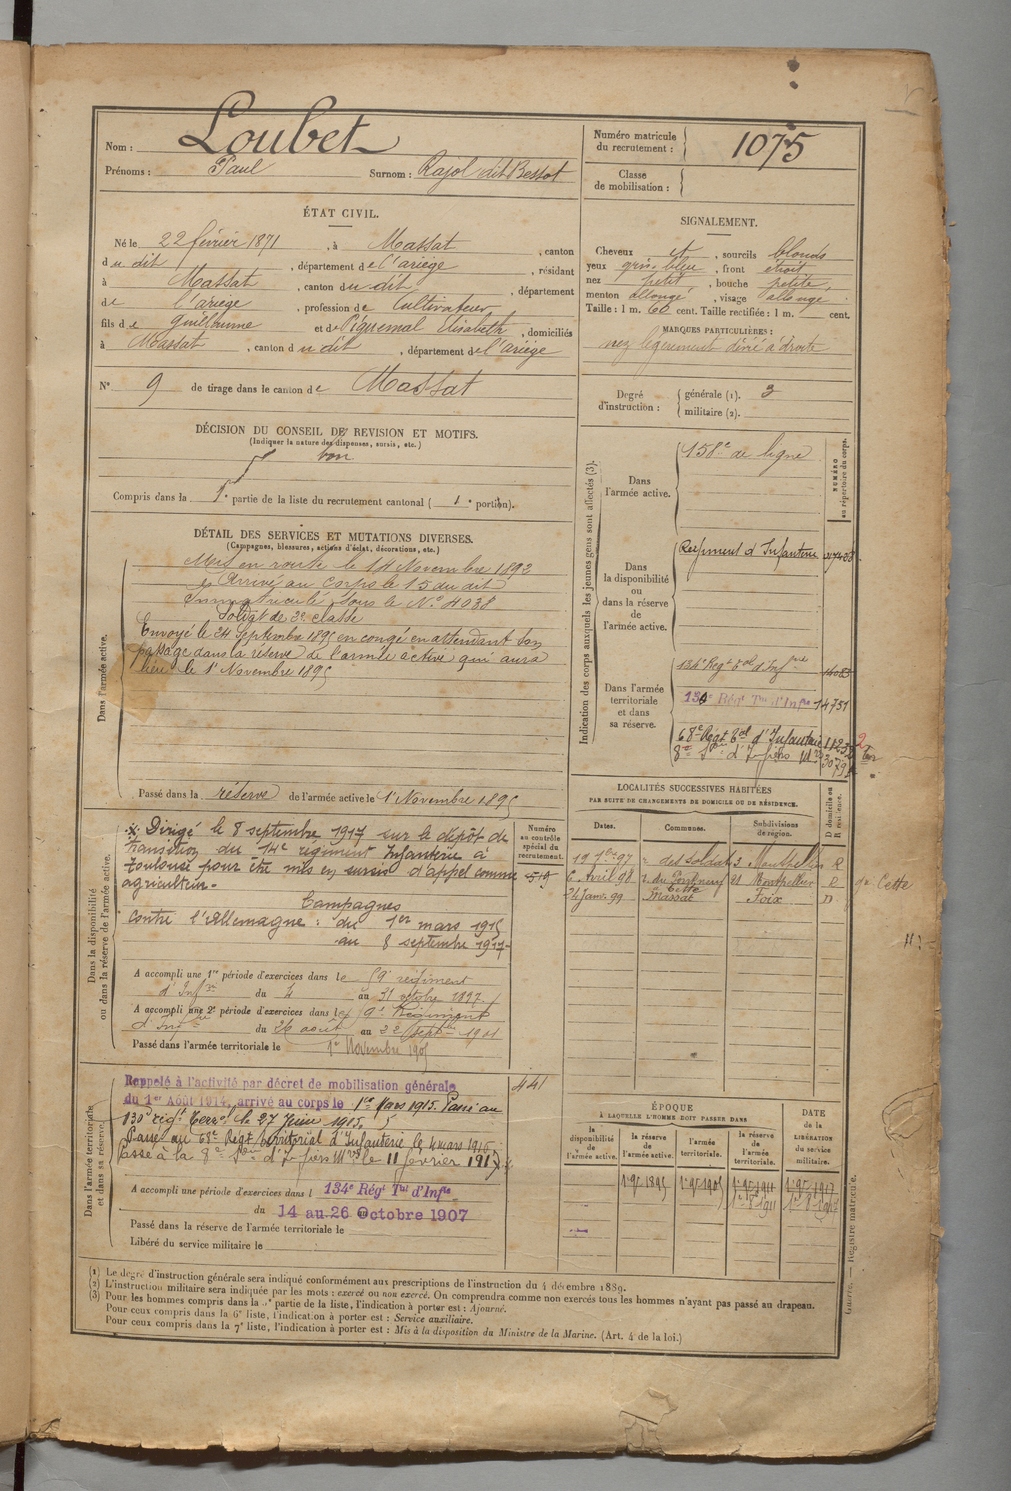 Nom : Loubet
Prénoms : Paul Surnom : Rajol dit Bessot
Numéro matricule du recrutement : 1075
Classe de mobilisation :
ÉTAT CIVIL.
Né le 22 février 1871, à Massat, canton
du dit, département de l'ariège, résidant
à Massat, canton du dit, département
de l'ariège, profession de Cultivateur
fils de Guilhaume et de Piquemal Elisabeth, domiciliés
à Massat, canton du dit, département de l'ariège
N° 9 de tirage dans le canton de Massat
SIGNALEMENT.
Cheveux et, sourcils blonds
yeux gris-bleu, front étroit
nez petit, bouche petite,
menton allongé, visage allongé.
Taille : 1 m. 60 cent. Taille rectifiée : 1 m. cent.
MARQUES PARTICULIÈRES :
nez légèrement dévié à droite
Degré d'instruction : générale (1). 3
militaire (2).
DÉCISION DU CONSEIL DE REVISION ET MOTIFS.
(Indiquer la nature des dispenses, sursis, etc.)
bon
Compris dans la 1e partie de la liste du recrutement cantonal ( 1e portion).
DÉTAIL DES SERVICES ET MUTATIONS DIVERSES.
(Campagnes, blessures, actions d'éclat, décorations, etc.)
Dans l'armée active.
Mis en route le 14 Novembre 1892
Arrivé au corps le 15 du dit
Immatriculé sous le N° 4038
Soldat de 2e classe
Envoyé le 24 septembre 1895 en congé en attendant son
passage dans la réserve de l'armée active qui aura
lieu le 1r Novembre 1895
Passé dans la réserve de l'armée active le 1r Novembre 1895
Indication des corps auxquels les jeunes gens sont affectés (3).
NUMÉRO au répertoire du corps.
Dans l'armée active. 158e de ligne
Dans la disponibilité ou dans la réserve de l'armée active.
Régiment d'Infanterie
Dans l'armée territoriale et dans sa réserve.
134e Régt Tal d'Infrie
130e Régt Tal d'Infie 14751
68e Regt Tal d'Infanterie
8e Son d'Infirs Mres
Dans la disponibilité ou dans la réserve de l'armée active.
Dirigé le 8 septembre 1917 sur le dépôt de
transition du 14e régiment Infanterie à
Toulouse pour être mis en sursis d'appel comme
agriculteur.
Campagnes
Contre l'Allemagne : du 1er mars 1915
au 8 septembre 1917
A accompli une 1re période d'exercices dans le 59e régiment
d'Infrie du 4 au 31 octobre 1897.
A accompli une 2e période d'exercices dans le Régiment
d'Infrie du 26 août au 22 septbre 1901
Passé dans l'armée territoriale le 1er Novembre 1905
Numéro au contrôle spécial du recrutement.
441
LOCALITÉS SUCCESSIVES HABITÉES
PAR SUITE DE CHANGEMENTS DE DOMICILE OU DE RÉSIDENCE.
Dates. Communes. Subdivisions de région. D domicile ou R résidence.
des Soldats Montpellier R
6 Avril 98 Montpellier R Cette
24 Janv. 99 Massat Foix D
Dans l'armée territoriale et dans sa réserve.
Rappelé à l'activité par décret de mobilisation générale
du 1er Août 1914, arrivé au corps le 1er Mars 1915. Passé au
130e régt Terral le 27 Juin 1915.
Passé au 68e Régt territorial d'Infanterie le 4 mars 1916
Passé à la 8e Son d'Infirs Mres le 11 février 1917
A accompli une période d'exercices dans l 134e Régt Tal d'Infie
du 14 au 26 Octobre 1907
Passé dans la réserve de l'armée territoriale le
Libéré du service militaire le
ÉPOQUE
À LAQUELLE L'HOMME DOIT PASSER DANS
la disponibilité de l'armée active.
la réserve de l'armée active.
l'armée territoriale.
la réserve de l'armée territoriale.
DATE DE LA LIBÉRATION du service militaire.
1r 9e 1895 1r 9e 1905 1r 9e 1911 1r 9e 1917
(1) Le degré d'instruction générale sera indiqué conformément aux prescriptions de l'instruction du 4 décembre 1889.
(2) L'instruction militaire sera indiquée par les mots : exercé ou non exercé. On comprendra comme non exercés tous les hommes n'ayant pas passé au drapeau.
(3) Pour les hommes compris dans la 5e partie de la liste, l'indication à porter est : Ajourné.
Pour ceux compris dans la 6e liste, l'indication à porter est : Service auxiliaire.
Pour ceux compris dans la 7e liste, l'indication à porter est : Mis à la disposition du Ministre de la Marine. (Art. 4 de la loi.)
Guerre. — Registre matricule.